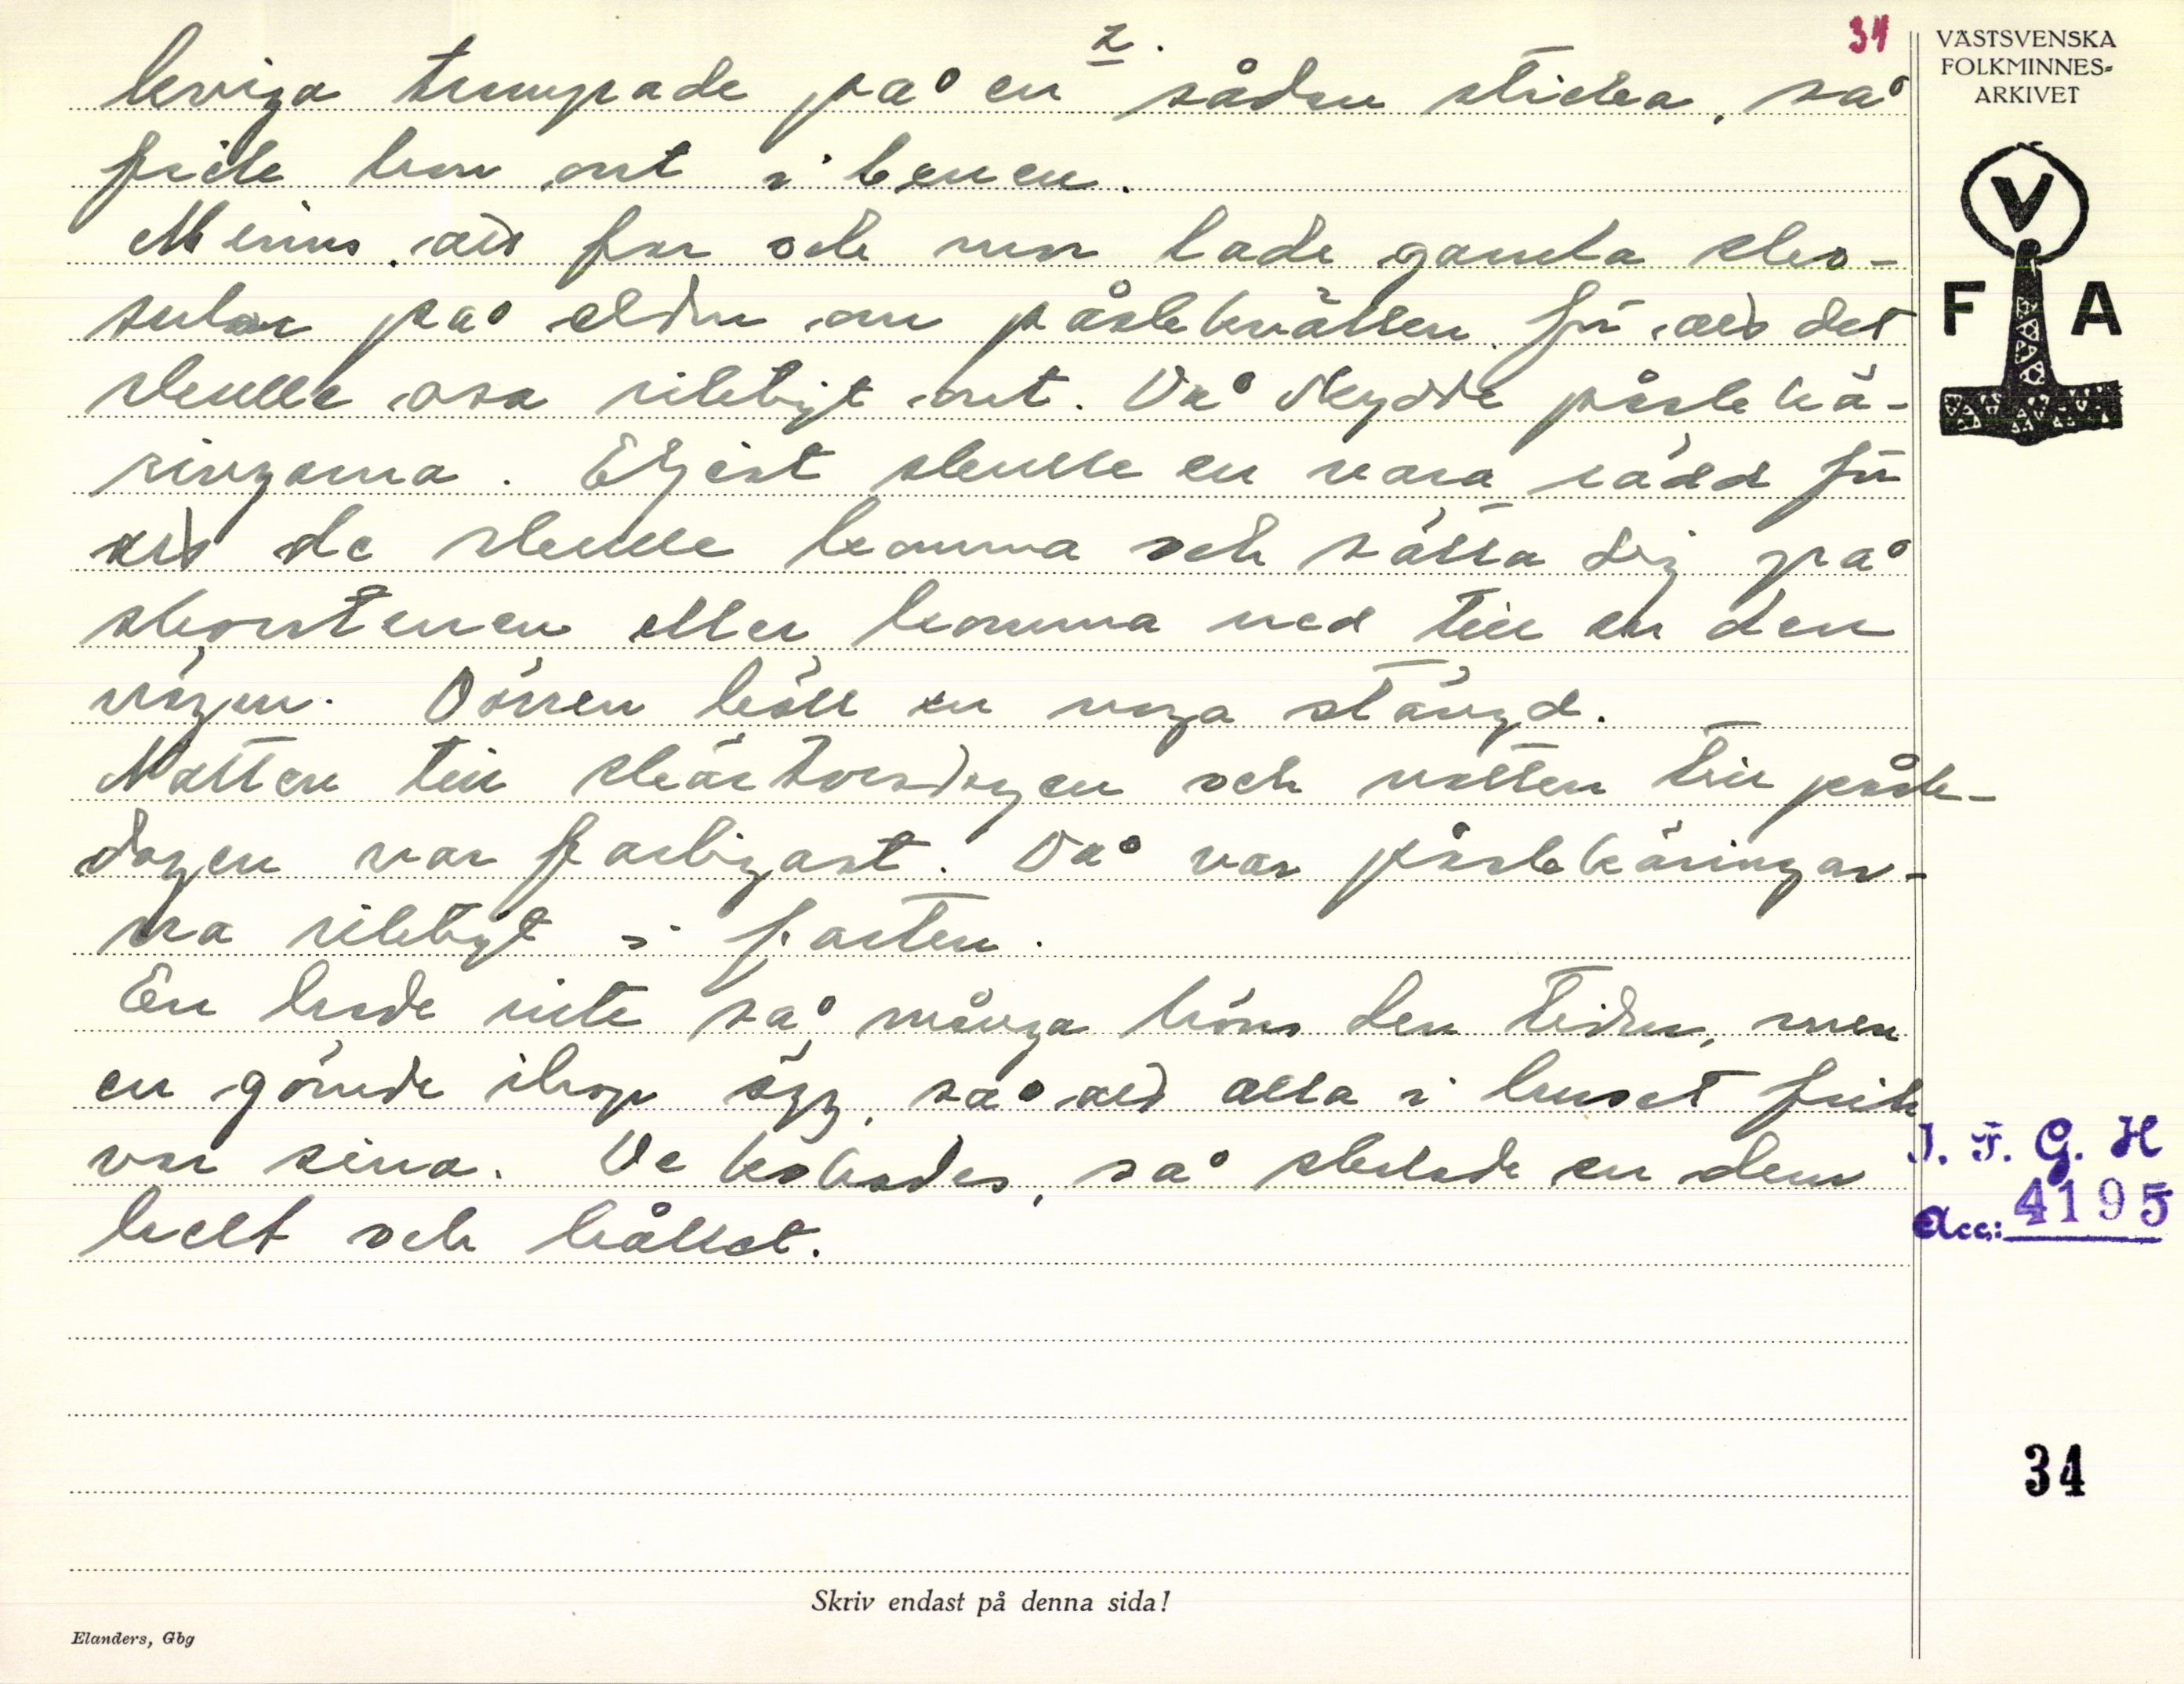 2.
34
kviga trampade på en sådan sticka, så
fick hon ont i benen.
Minns, att far och mor lade gamla sko-
sulor på elden om påskkvällen för att det
skulle osa riktigt ont. Då skydde påskkä-
ringarna. Eljest skulle en vara rädd för
att de skulle komma och sätta sig på
skorstenen eller komma ned till en den
vägen. Dörren höll en noga stängd.
Natten till skärtorsdagen och natten till påsk-
dagen var farligast. Då var påskkäringar-
na riktigt i farten.
En hade inte så många höns den tiden, men
en gömde ihop ägg, så att alla i huset fick
var sina. De kokades, så skalade en dem
helt och hållet.
VÄSTSVENSKA
FOLKMINNES-
ARKIVET
V
F A
I. F. G. H
Acc: 4195
34
Skriv endast på denna sida!
Elanders, Gbg